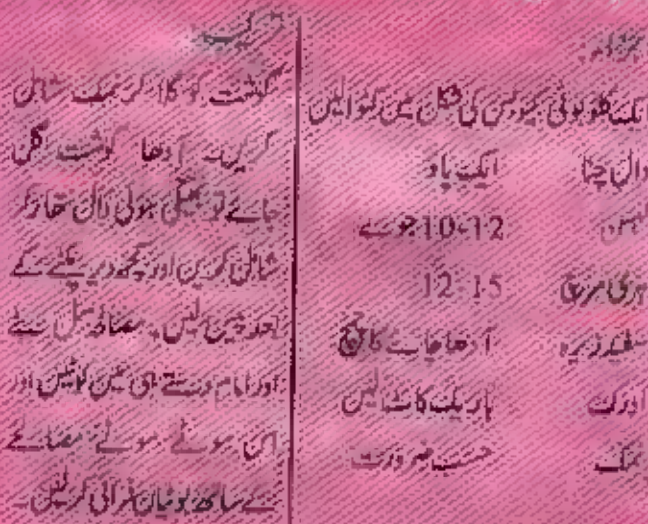 اجزاء:
ایک کلو بوٹی کیوبس کی شکل میں کٹوالیں
دال چنا ایک پاؤ
لہسن 10-12 جوے
ہری مرچ 12-15
سفید زیرہ آدھا چائے کا چمچ
ادرک باریک کاٹ لیں
نمک حسب ضرورت
ترکیب:
گوشت کو گلا کر نمک شامل
کریں۔ آدھا گوشت گل
جائے تو بھیگی ہوئی دال نتھار کر
شامل کریں اور کچھ دیر پکنے کے
بعد پیس لیں۔ مصالحہ سل سے
اور امام دستے ہی میں کوٹیں اور
اس موٹے موٹے مصالحے
کے ساتھ بوٹیاں فرائی کر لیں۔